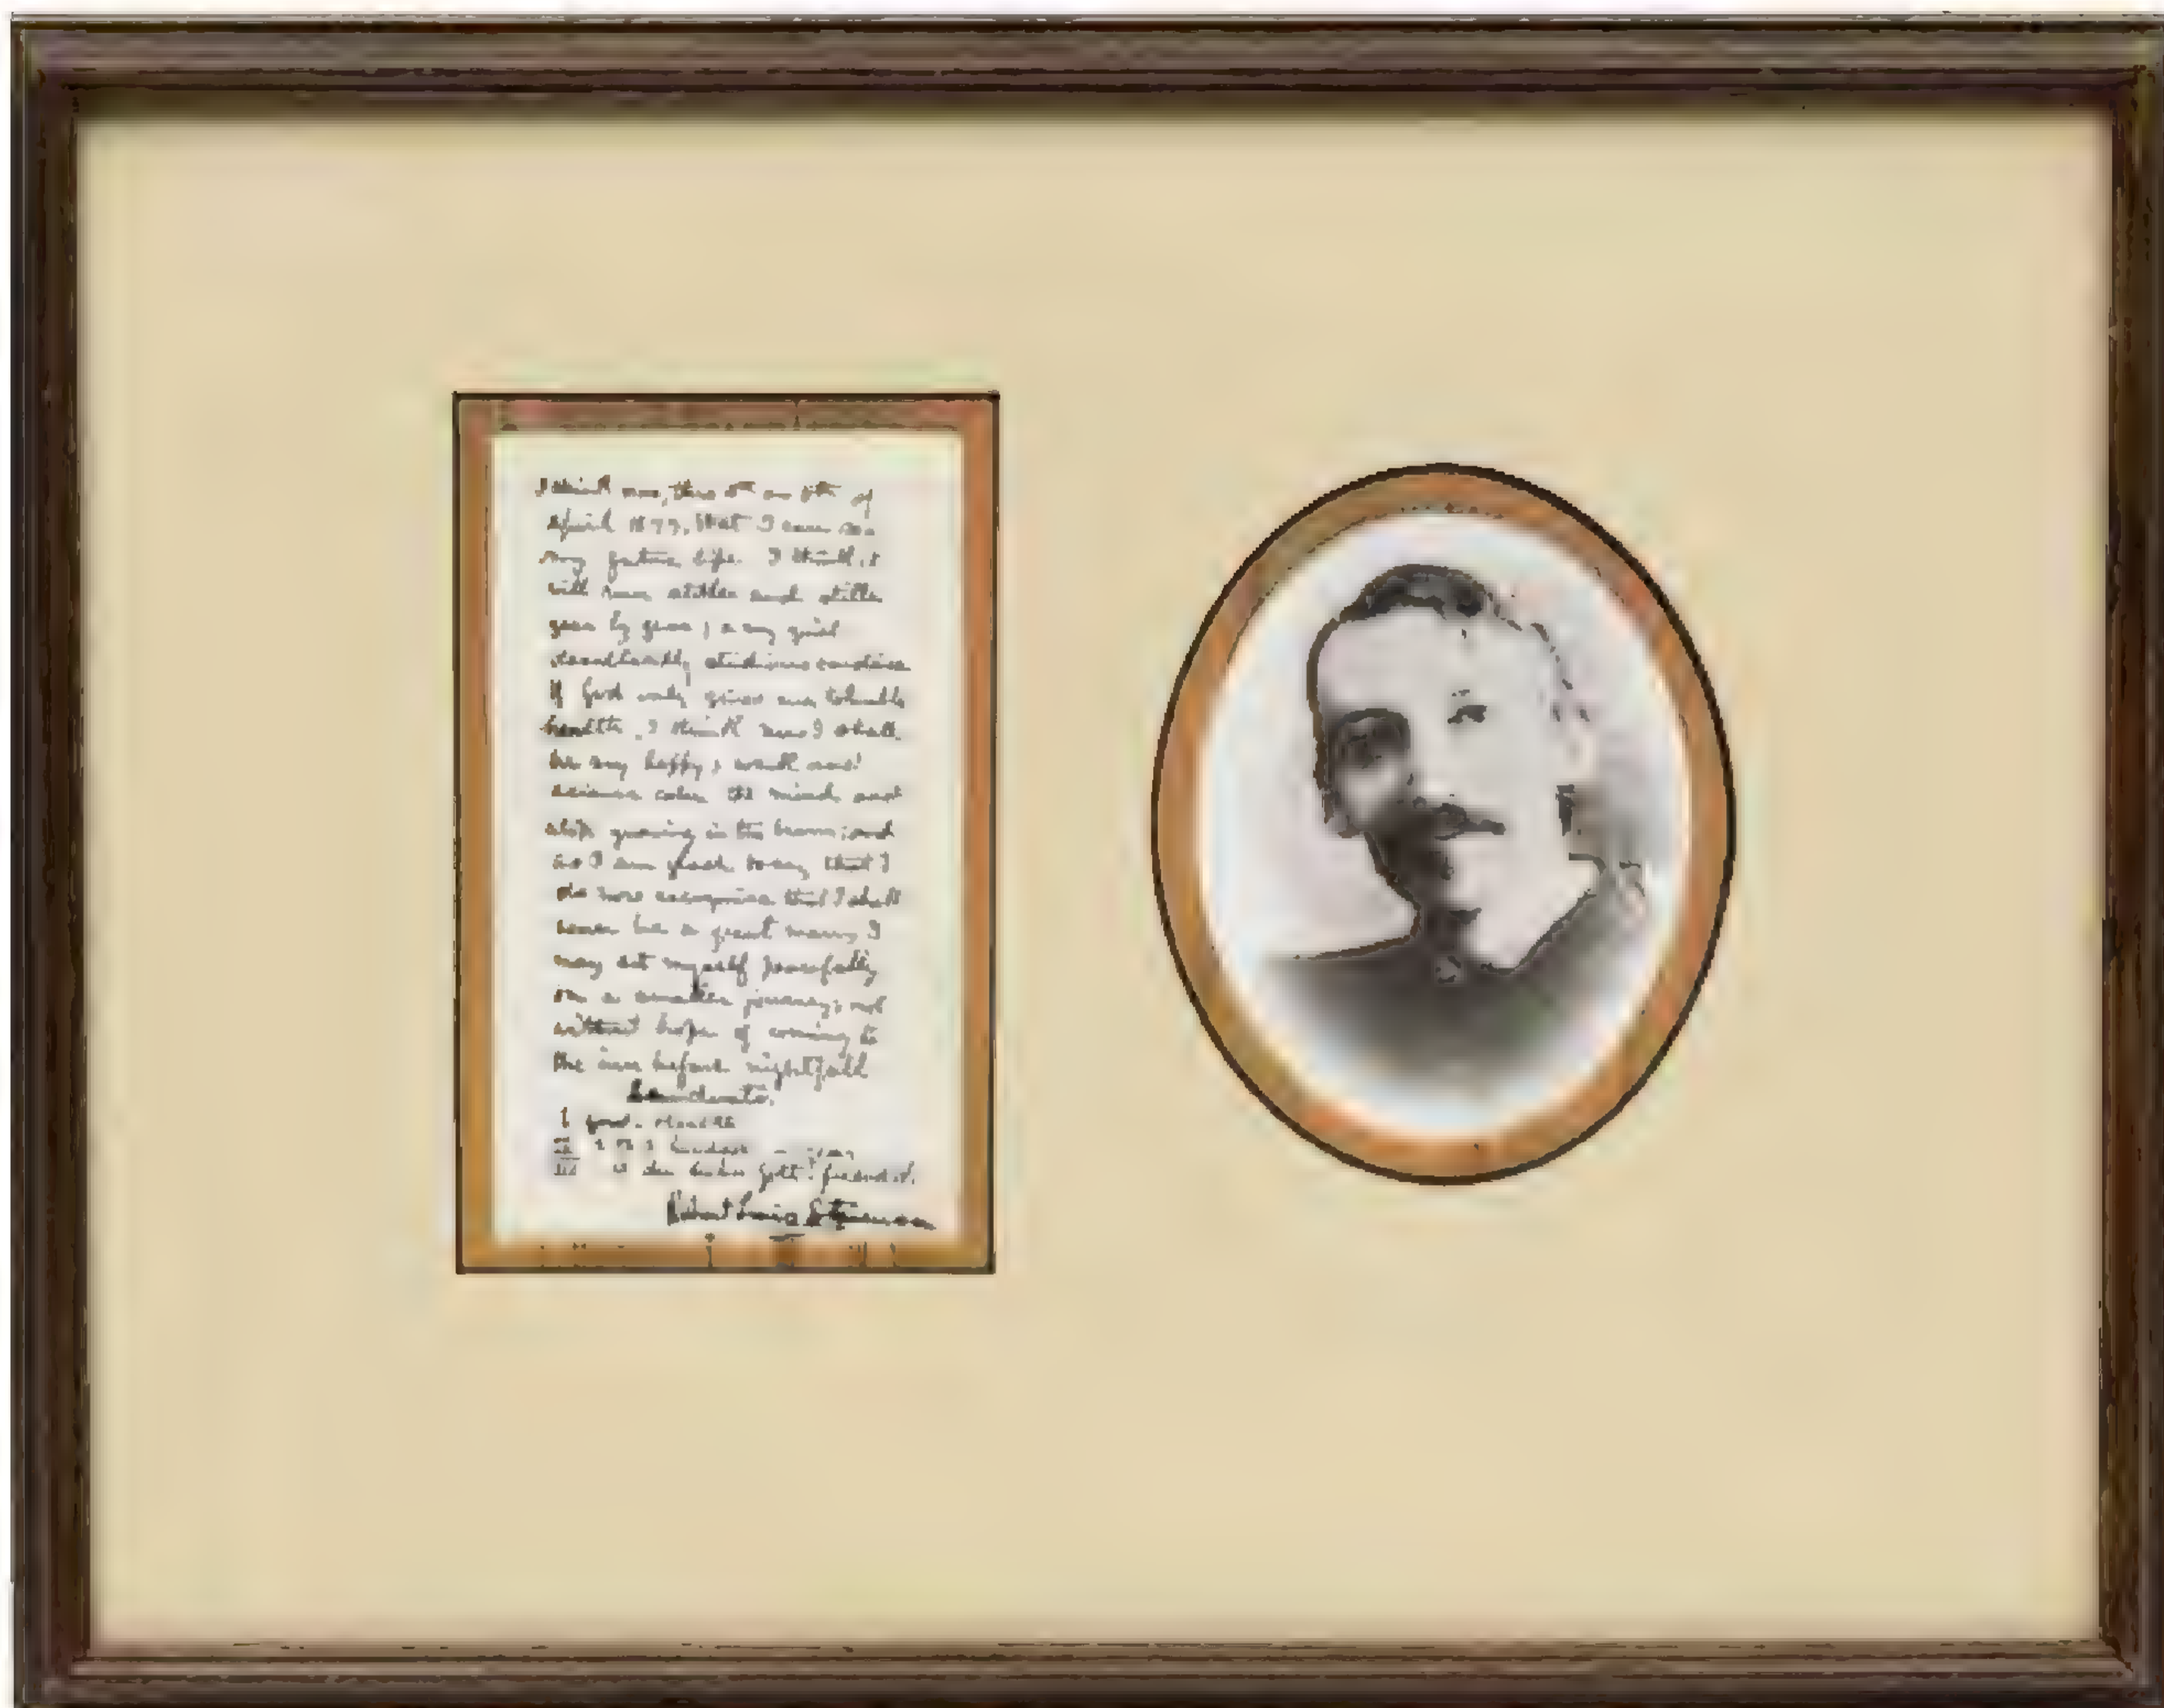 I think now, this 5th or 6th of
April 1873, that I can see
my future life. I think it
will run stiller and stiller
year by year; a very quiet
desultorily studious existence.
If God only gives me tolerable
health, I think now I shall
be very happy; work and
science calm the mind and
stop gnawing in the brain; and
as I am glad to say that I
do now recognise that I shall
never be a great man, I
may set myself peacefully
on a smaller journey; not
without hope of coming to
the inn before nightfall
Desiderata.
I good. health
II 2 to 3 hundred
III O du lieber Gott! friends.
Robert Louis Stevenson